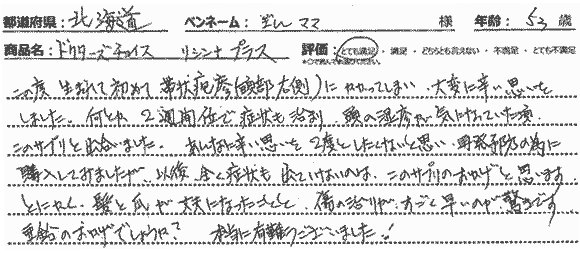 都道府県：北海道 ペンネーム：ぎんママ 様 年齢：53歳
商品名：ドクターズチョイス リシンプラス 評価：とても満足・満足・どちらとも言えない・不満足・とても不満足
※○で囲んでご選択ください。
この度 生まれて初めて 帯状疱疹(頭部右側)にかかってしまい、大変に辛い思いを
しました。何とか2週間位で症状も治まり 頭の湿疹が気になっていた頃
このサプリと出会いました。あんなに辛い思いを2度としたくないと思い、再発予防の為に
購入してみましたが、以後、全く症状も出ていないのは、このサプリのおかげと思います。
とにかく、髪と爪が丈夫になったことと、傷の治りがすごく早いのが驚きです。
亜鉛のおかげでしょうか? 本当に有難うございました!